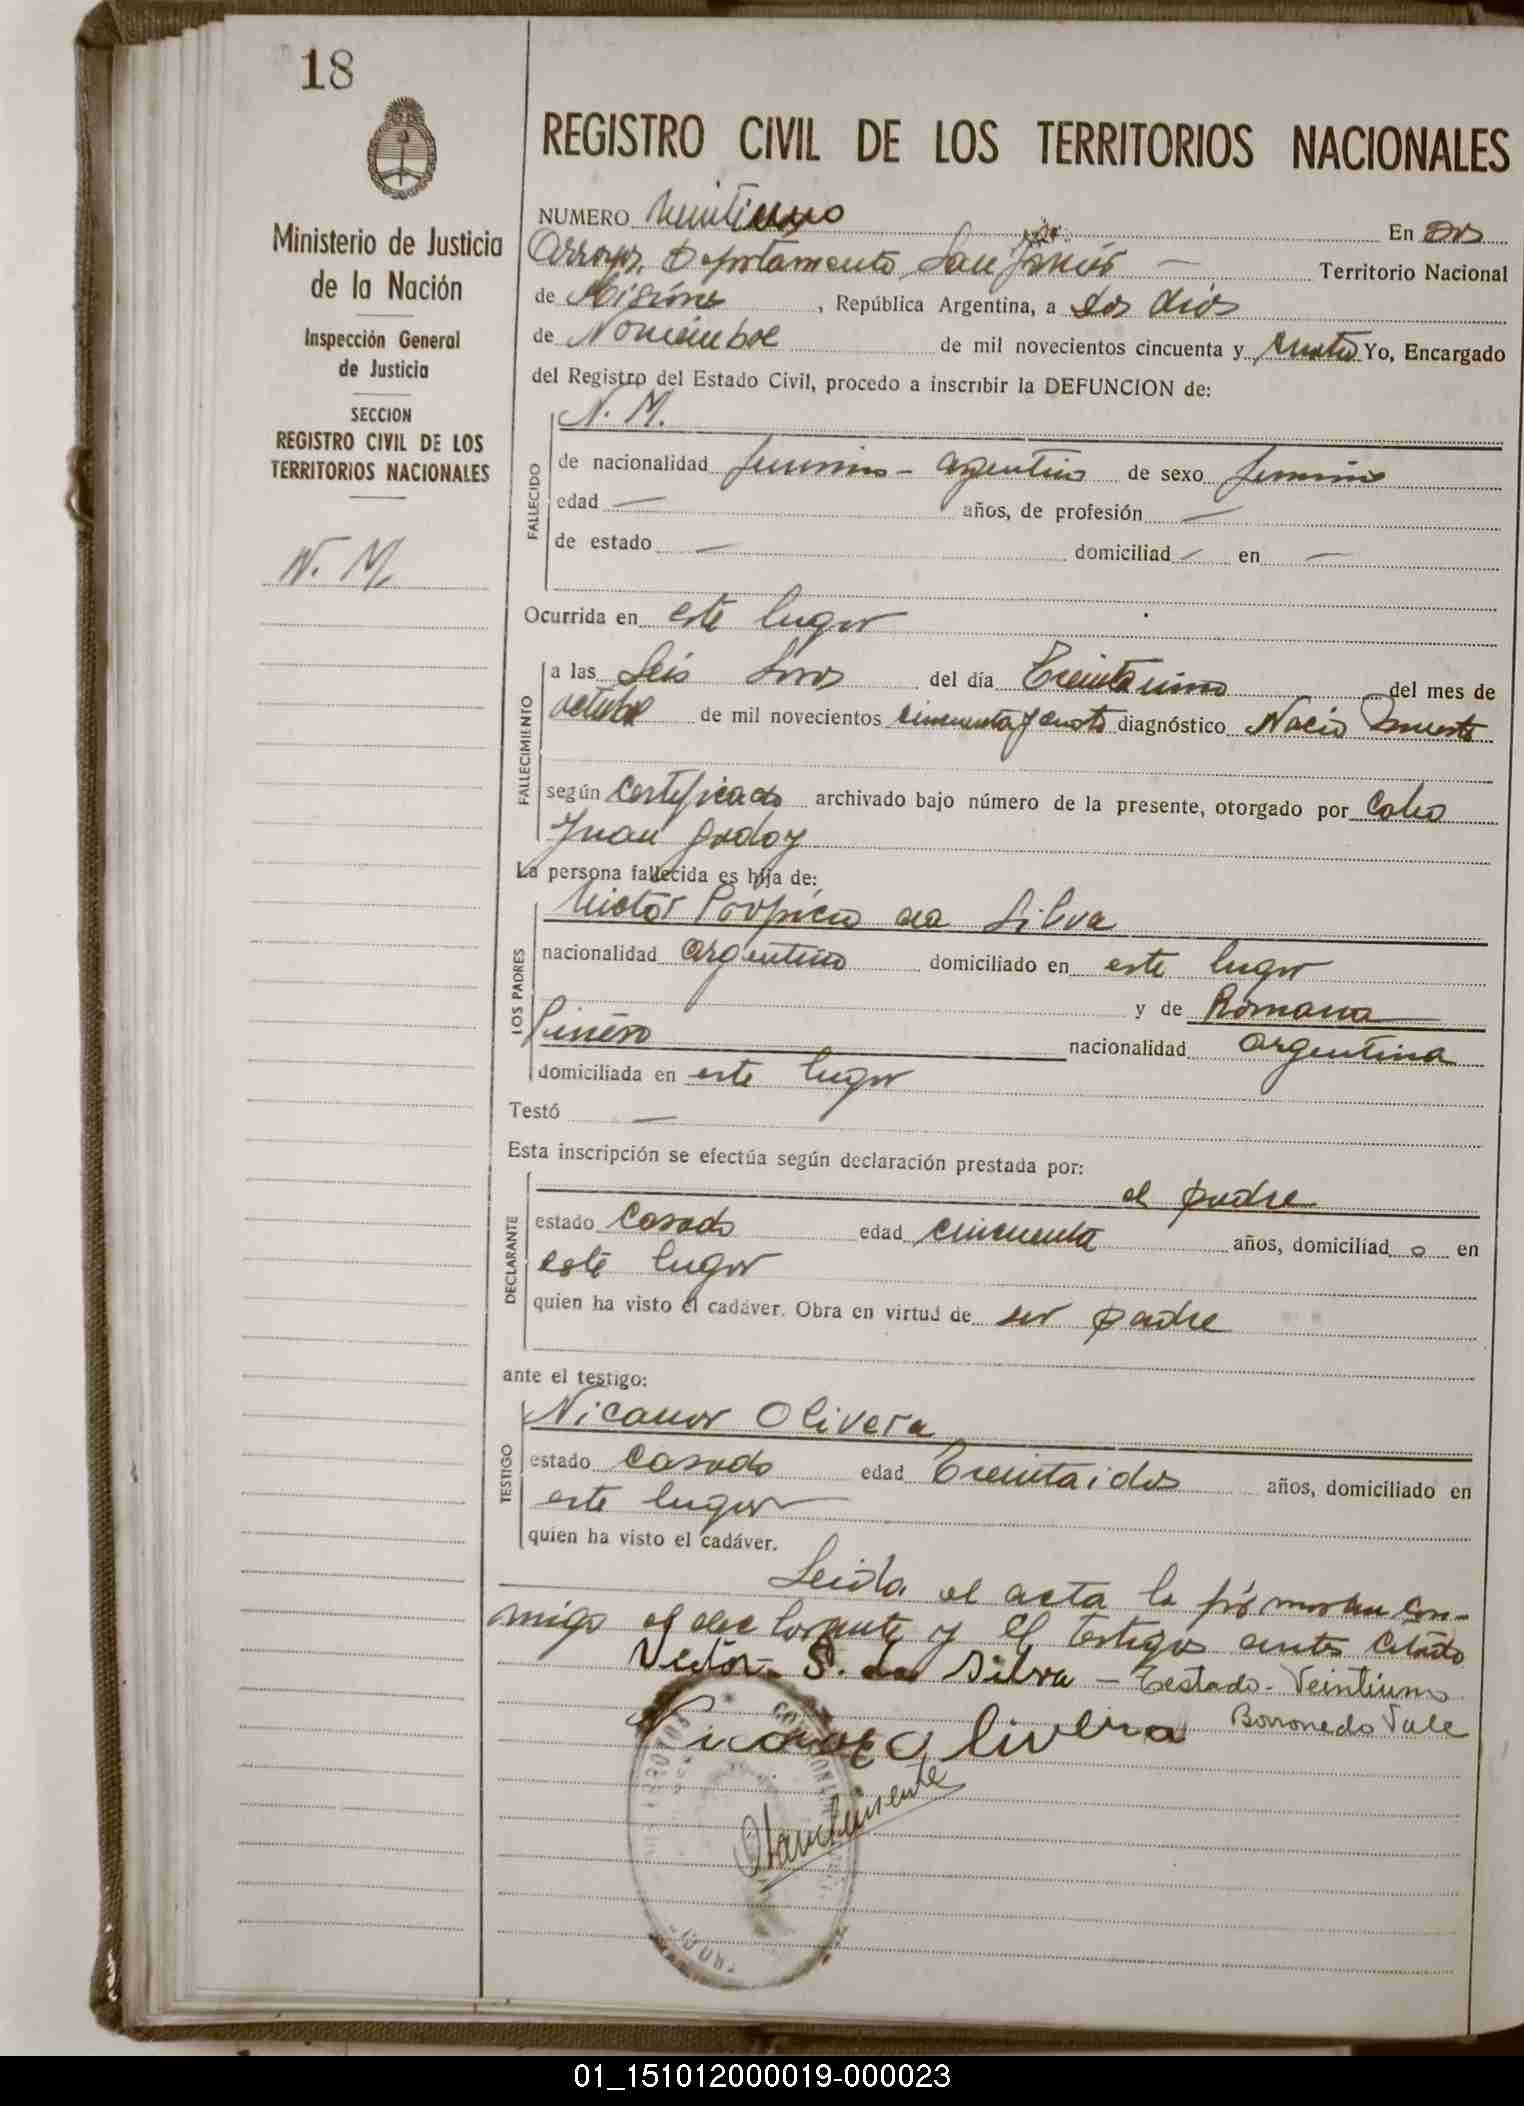 18
Ministerio de Justicia
de la Nación
Inspección General
de Justicia
SECCION
REGISTRO CIVIL DE LOS
TERRITORIOS NACIONALES
N. M.
REGISTRO CIVIL DE LOS TERRITORIOS NACIONALES
NUMERO Veintiuno En Dos
Arroyos, Departamento San Javier Territorio Nacional
de Misiones, República Argentina, a los dos
de Noviembre de mil novecientos cincuenta y cuatro Yo, Encargado
del Registro del Estado Civil, procedo a inscribir la DEFUNCION de:
N. M.
FALLECIDO
de nacionalidad femenino - argentino de sexo femenino
edad — años, de profesión —
de estado — domiciliad — en —
Ocurrida en este lugar
FALLECIMIENTO
a las Seis horas del día Treintaiuno del mes de
octubre de mil novecientos cincuenta y cuatro diagnóstico Nació muerta
según certificado archivado bajo número de la presente, otorgado por Cabo
Juan Godoy
La persona fallecida es hija de:
LOS PADRES
Victor da Silva
nacionalidad argentino domiciliado en este lugar
y de Romana
Pinéro nacionalidad argentina
domiciliada en este lugar
Testó —
Esta inscripción se efectúa según declaración prestada por:
el padre
DECLARANTE
estado casado edad cincuenta años, domiciliad o en
este lugar
quien ha visto el cadáver. Obra en virtud de ser padre
ante el testigo:
TESTIGO
Nicanor Olivera
estado casado edad Treintaidos años, domiciliado en
este lugar
quien ha visto el cadáver.
Leida el acta la firman con-
migo el declarante y el testigo antes citado
Victor S. da Silva — Testado - Veintiuno
Borroneado Vale
Nicanor Olivera
01_151012000019-000023